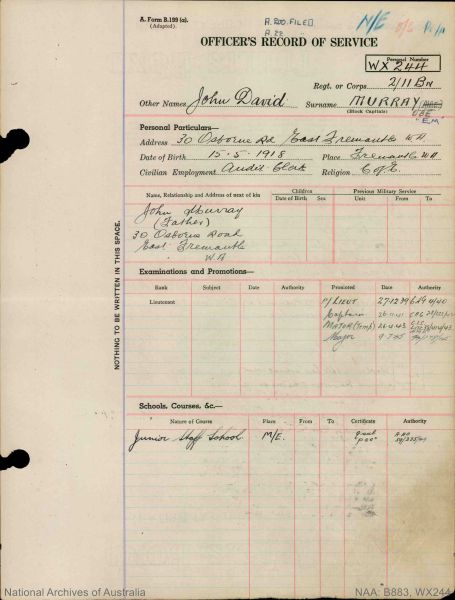 A. Form B.199 (a).
(Adapted).
A.200. FILED
A.22
N/E
OFFICER'S RECORD OF SERVICE
Personal Number
WX 244
Regt. or Corps 2/11 Bn
Other Names John David Surname MURRAY (MBE)
(Block Capitals) OBE
"EM"
Personal Particulars—
Address 30 Osborne Rd East Fremantle W.A
Date of Birth 15.5.1918 Place Fremantle W.A
Civilian Employment Audit Clerk Religion C of E.
Name, Relationship and Address of next of kin
Children
Date of Birth Sex
Previous Military Service
Unit From To
John Murray
(Father)
30 Osborne Road
East Fremantle
W.A
NOTHING TO BE WRITTEN IN THIS SPACE.
Examinations and Promotions—
Rank Subject Date Authority Promoted Date Authority
Lieutenant
Lieut 27.12.39
Captain 26.11.41
Major (Temp) 26.4.43
Major 9.7.45
Schools, Courses, &c.—
Nature of Course Place From To Certificate Authority
Junior Staff School M/E.
National Archives of Australia
NAA: B883, WX244